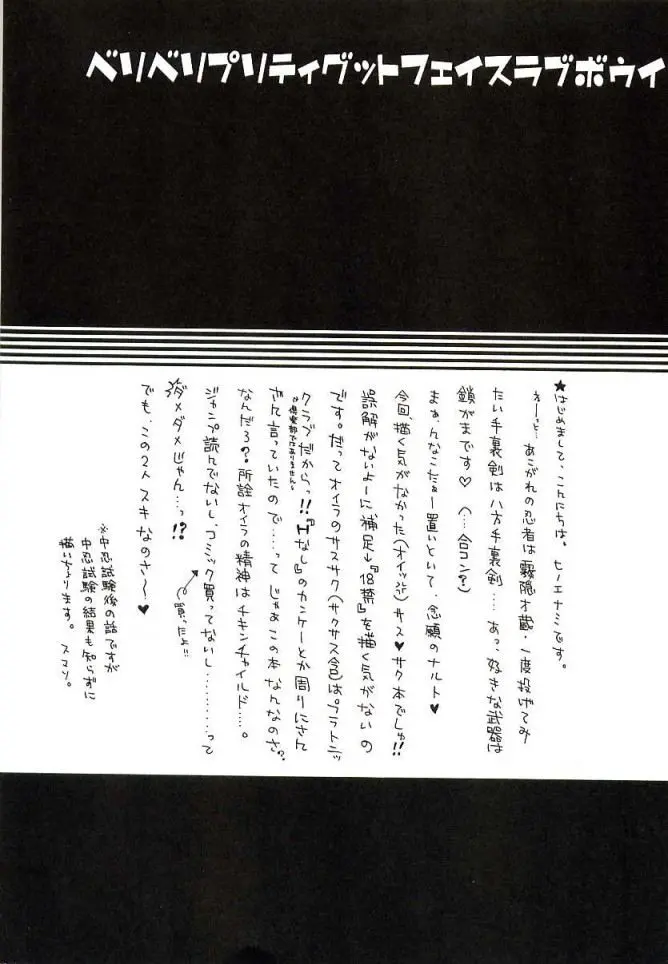 ベリベリプリティグットフェイスラブボウイ
★はじめまして、こんにちは。ヒノエナミです。
えーっと…あこがれの忍者は霧隠才蔵・一度投げてみ
たい手裏剣は八方手裏剣……あっ、好きな武器は
鎖がまです♡(…合コン?)
まぁ、んなこたぁー置いといて、念願のナルト♥
今回描く気がなかった(オイッ)サス♥サク本でしゅ!!
誤解がないよーに補足↓『18禁』を描く気がないの
です。だってオイラのサスサク(サクサス含)はプラトニッ
クラブだからっ!!『Hなし』のカンケーとか周りにさん
※倶楽部ではありません。
ざん言っていたので……って じゃあこの本なんなのさ?
なんだろ?所詮オイラの精神はチキンチャイルド……。
ジャンプ読んでないし、コミック買ってないし…………って
買ったよ!!
ダメダメじゃん…っ!?
でも、この2人スキなのさ〜♥
※中忍試験後の話ですが
中忍試験の結果も知らずに
描いちょります。スマソ。